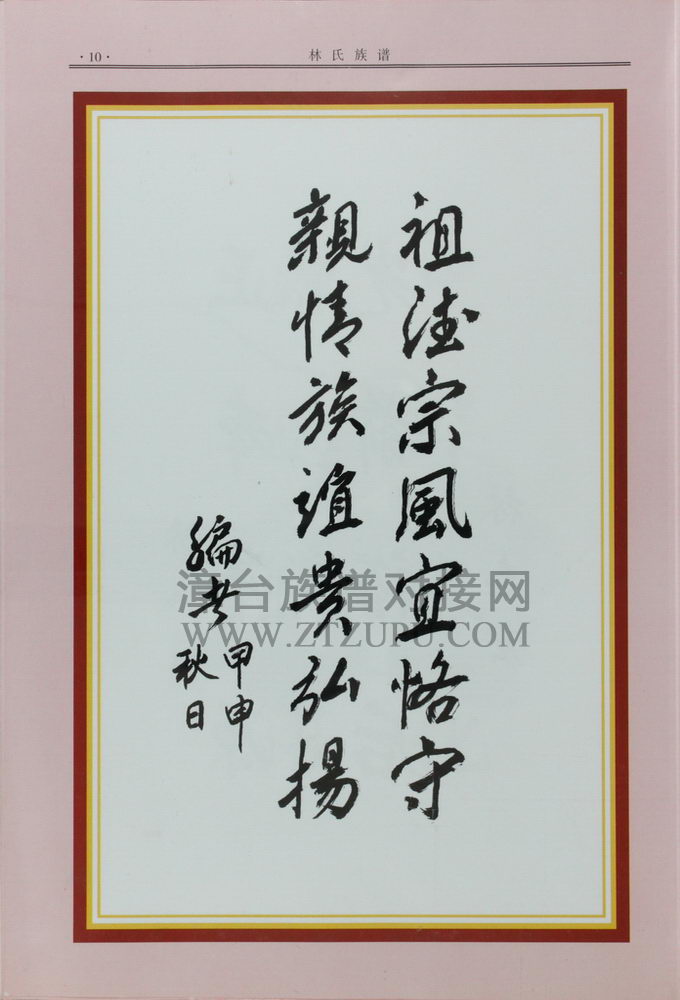 ·10·
林氏族谱
祖德宗風宜恪守
親情族誼貴弘揚
編者
甲申
秋日
漳台族谱对接网
WWW.ZTZUPU.COM